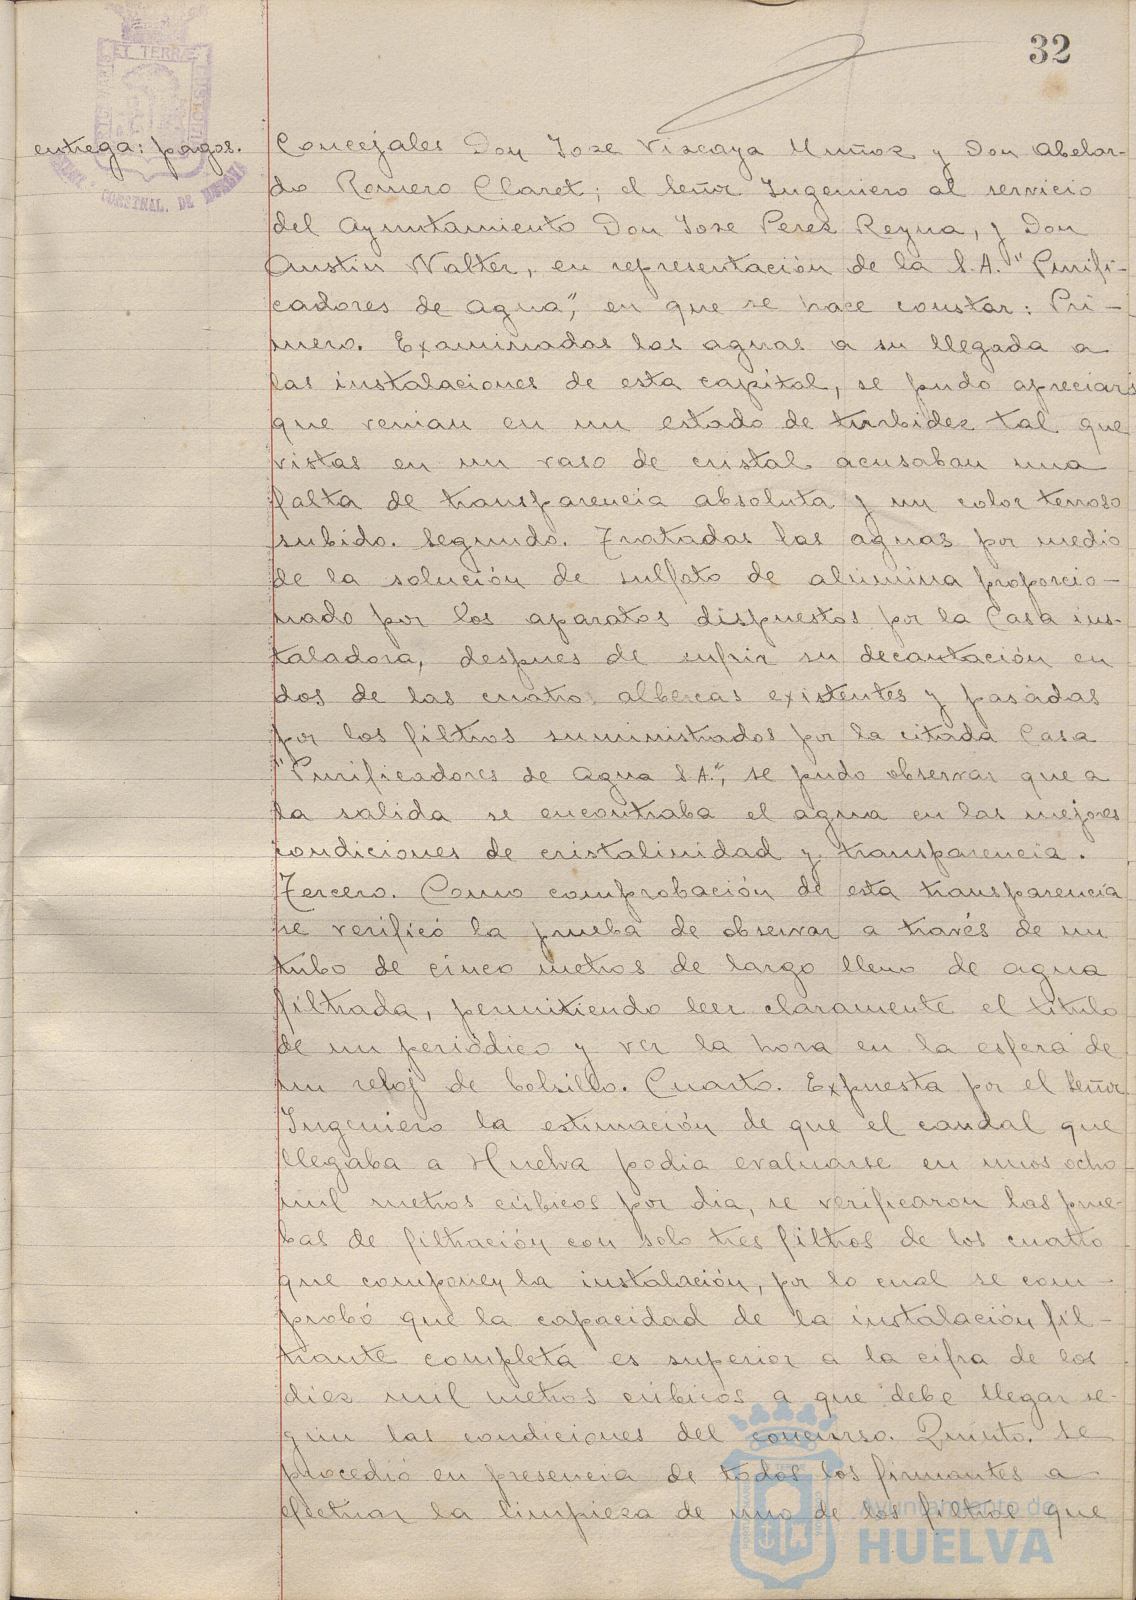 32
entrega: pagos.
Concejales Don Jose Vizcaya Muñoz y Don Abelar-
do Romero Claret; el Señor Ingeniero al servicio
del Ayuntamiento Don Jose Perez Reyna, y Don
Austin Walter, en representación de la S.A. "Purifi-
cadores de Agua", en que se hace constar: Pri-
mero. Examinadas las aguas a su llegada a
las instalaciones de esta capital, se pudo apreciar
que venian en un estado de turbidez tal que
vistas en un vaso de cristal acusaban una
falta de transparencia absoluta y un color terroso
subido. Segundo. Tratadas las aguas por medio
de la solución de sulfato de alumina proporcio-
nado por los aparatos dispuestos por la Casa ins-
taladora, despues de sufrir su decantación en
dos de las cuatro albercas existentes y pasadas
por los filtros suministrados por la citada Casa
"Purificadores de Agua S.A.", se pudo observar que a
la salida se encontraba el agua en las mejores
condiciones de cristalinidad y transparencia.
Tercero. Como comprobación de esta transparencia
se verificó la prueba de observar a través de un
tubo de cinco metros de largo lleno de agua
filtrada, permitiendo leer claramente el titulo
de un periódico y ver la hora en la esfera de
un reloj de bolsillo. Cuarto. Expuesta por el Señor
Ingeniero la estimación de que el caudal que
llegaba a Huelva podia evaluarse en unos ocho
mil metros cúbicos por dia, se verificaron las prue-
bas de filtración con solo tres filtros de los cuatro
que componen la instalación, por lo cual se com-
probó que la capacidad de la instalación fil-
trante completa es superior a la cifra de los
diez mil metros cúbicos a que debe llegar se-
gún las condiciones del concurso. Quinto. Se
procedió en presencia de todos los firmantes a
efectuar la limpieza de uno de los filtros que
Ayuntamiento de
HUELVA